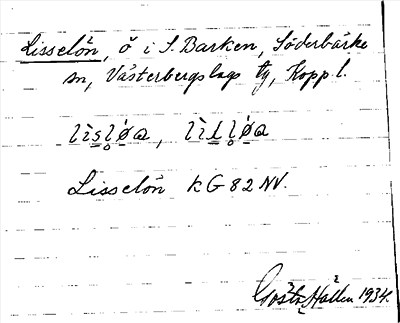 Lisselön, ö i S. Barken, Söderbärke
sn, Västerbergslags tg, Kopp. l.
Lisselön KG 82 NV.
Gösta Hallén 1934.